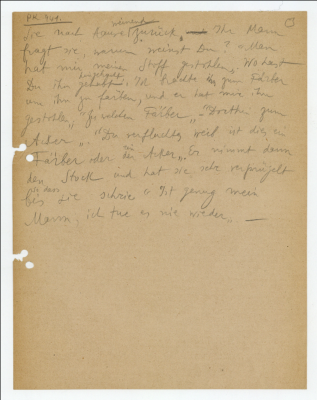 PK 941.
weinend
Sie nach Hause zurück. — Ihr Mann
fragt sie, warum weinst Du? "Man
hat mir meinen Stoff gestohlen." Wo hast
Du ihn gehabt. Ich brachte ihn zum Färber
um ihn zu färben, und er hat mir ihn
gestohlen." "Zu welchem Färber" "Dorthin zum
Acker". "Du verfluchtes Weib ist dies ein
Färber oder ein Acker". Er nimmt dann
den Stock und hat sie sehr verprügelt
bis sie schrie es ist genug mein
Mann; ich tue es nie wieder. —